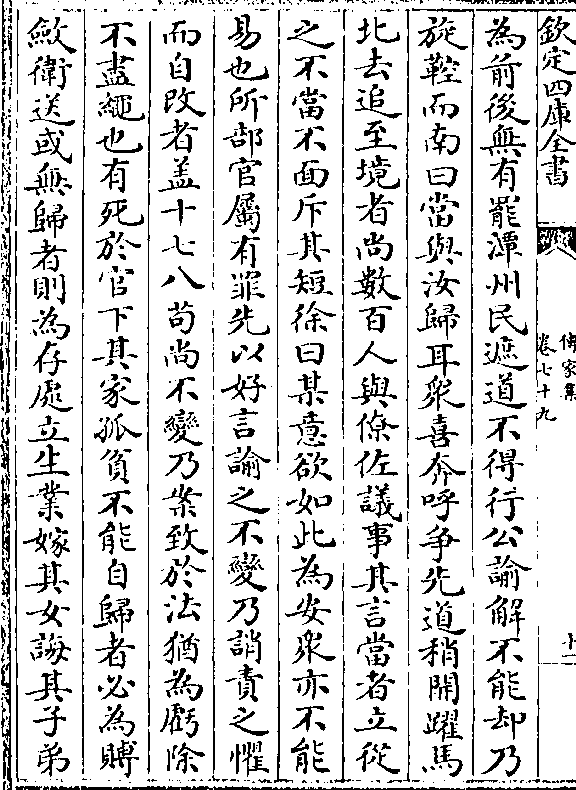 欽定四庫全書
傳家集
卷七十九
十一
為前後無有罷潭州民遮道不得行公諭解不能却乃
旋鞚而南曰當與汝歸耳衆喜奔呼争先道稍開躍馬
北去追至境者尚數百人與僚佐議事其言當者立從
之不當不面斥其短徐曰某意欲如此為安衆亦不能
易也所部官屬有罪先以好言諭之不變乃誚責之懼
而自改者盖十七八苟尚不變乃案致於法猶為虧除
不盡繩也有死於官下其家孤貧不能自歸者必為賻
斂衛送或無歸者則為存處立生業嫁其女誨其子弟